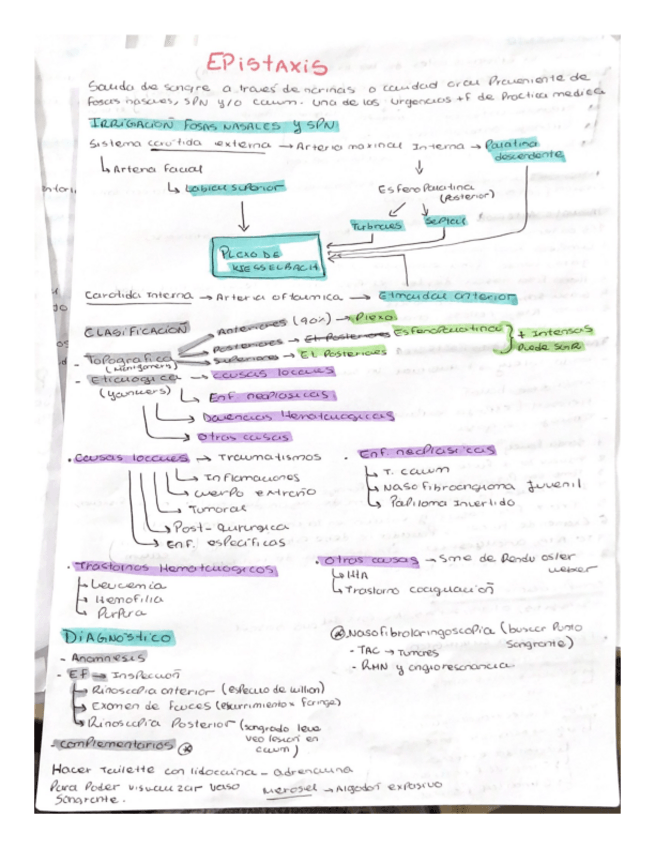 EPISTAXIS
Salida de sangre a través de narinas o cavidad oral Proveniente de
fosas nasales, SPN y/o cavum. una de las urgencias +f de Practica medica
IRRIGACIÓN FOSAS NASALES Y SPN
Sistema carótida externa → Arteria maxinal Interna → Palatina
descendente
↳ Arteria facial
↳ Labial superior
Esfeno Palatina
(Posterior)
Turbinales
Septal
PLEXO DE
KIESSELBACH
Carotida Interna → Arteria oftalmica → Etmoidal anterior
CLASIFICACIÓN
- Topografica
Anteriores (90%) → Plexo
Posteriores → Et Posteriores Esfenopalatina
Superiores → Et. Posteriores
+ Intensas
Puede SNR
- Etiologica → causas locales
(yankers)
↳ Enf neoplasicas
↳ Dolencias Hematologicas
↳ otras causas
• Causas locales → Traumatismos
↳ Inflamaciones
↳ cuerpo extraño
↳ Tumoral
↳ Post-Quirurgica
↳ Enf. especificas
• Enf. neoplasicas
↳ T. cavum
↳ Nasofibroangioma Juvenil
↳ Papiloma Invertido
• Trastornos Hematologicos
↳ Leucemia
↳ Hemofilia
↳ Purpura
• otras causas → Sme de Rendu osler
weber
↳ HTA
↳ Trastorno coagulación
DIAGNOSTICO
- Anamnesis
- EF → Inspección
↳ Rinoscopia anterior (especulo de killian)
↳ Examen de fauces (escurrimiento x faringe)
↳ Rinoscopia Posterior (sangrado leve
veo lesion en
cavum)
- complementarios ⊛
⊛ Nasofibrolaringoscopia (buscar Punto
Sangrante)
- TAC → Tumores
- RMN y angioresonancia
Hacer Toilette con lidocaina - adrenalina
Para Poder visualizar vaso
Sangrante.
Merosel → Algodon expansivo